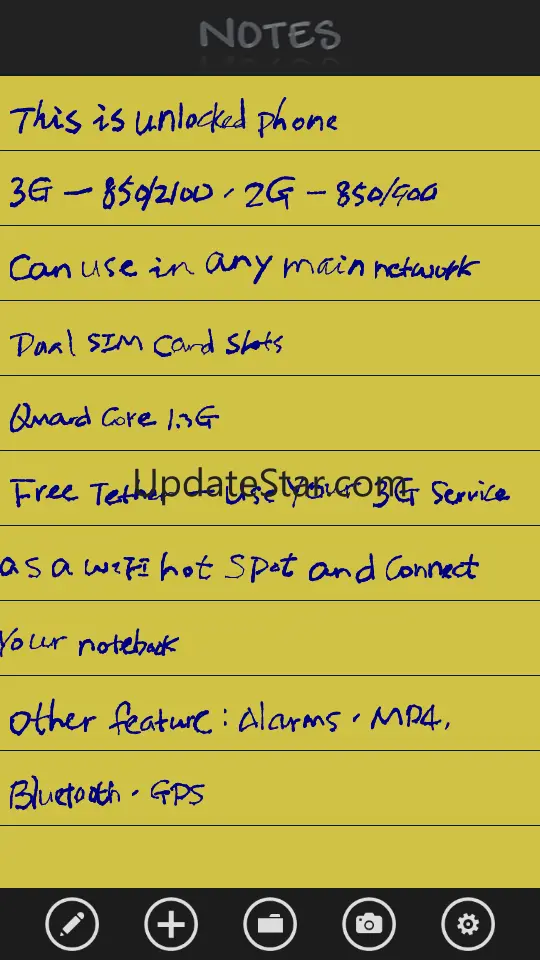 NOTES
This is unlocked phone
3G - 850/2100, 2G - 850/900
Can use in any main network
Dual SIM Card Slots
Quard Core 1.3G
Free Tether - Use Your 3G Service
UpdateStar.com
as a WiFi hot spot and Connect
Your notebook
Other feature: Alarms, MP4,
Bluetooth, GPS